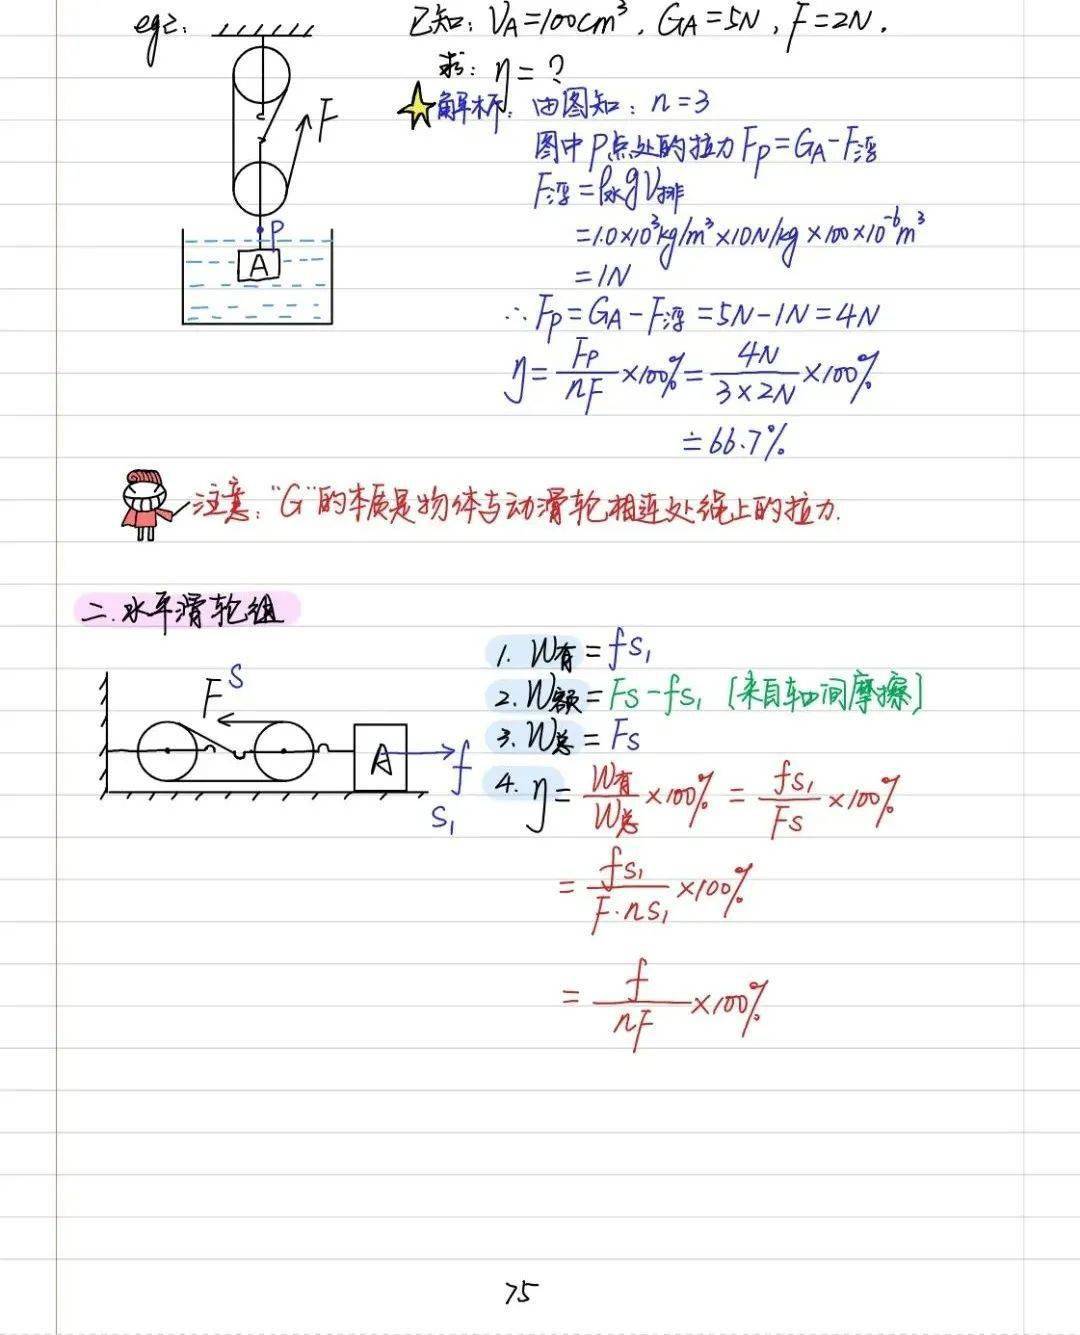 eg2:
已知: VA=100cm³, GA=5N, F=2N.
求: η=?
解析: 由图知: n=3
F
图中P点处的拉力 Fp=GA-F浮
F浮=ρ水gV排
P
=1.0×10³kg/m³×10N/kg×100×10⁻⁶m³
A
=1N
∴Fp=GA-F浮=5N-1N=4N
η=Fp/nF×100%=4N/3×2N×100%
≐66.7%
注意: "G"的本质是物体与动滑轮相连处绳上的拉力.
二.水平滑轮组
1. W有=fs₁
2. W额=Fs-fs₁ [来自轴间摩擦]
3. W总=Fs
F S
A f
S₁
4. η=W有/W总×100%=fs₁/Fs×100%
=fs₁/F·ns₁×100%
=f/nF×100%
75